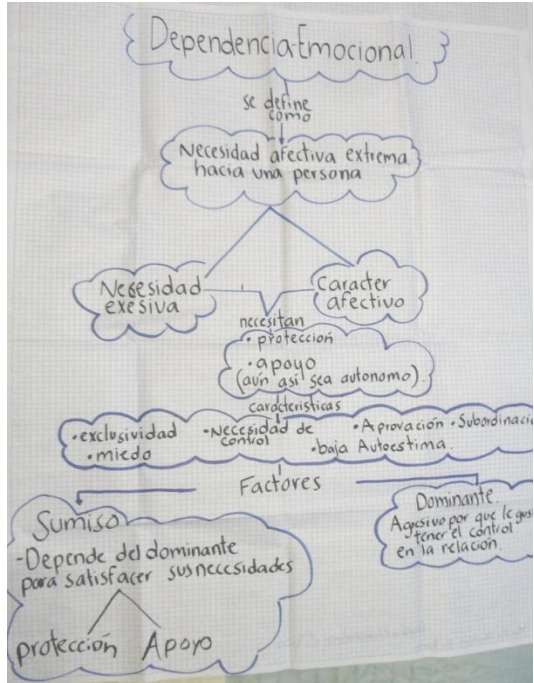 Dependencia Emocional.
se define
como
Necesidad afectiva extrema
hacia una persona
Necesidad
exesiva
Caracter
afectivo
necesitan
• protección
• apoyo
(aún asi sea autonomo).
caracteristicas
• exclusividad
• miedo
• Necesidad de
control
• Aprovación • Subordinació
• baja Autoestima.
Factores
Sumiso
- Depende del dominante
para satisfacer sus necesidades
protección Apoyo
Dominante.
Agresivo por que le gus
tener el control
en la relación.